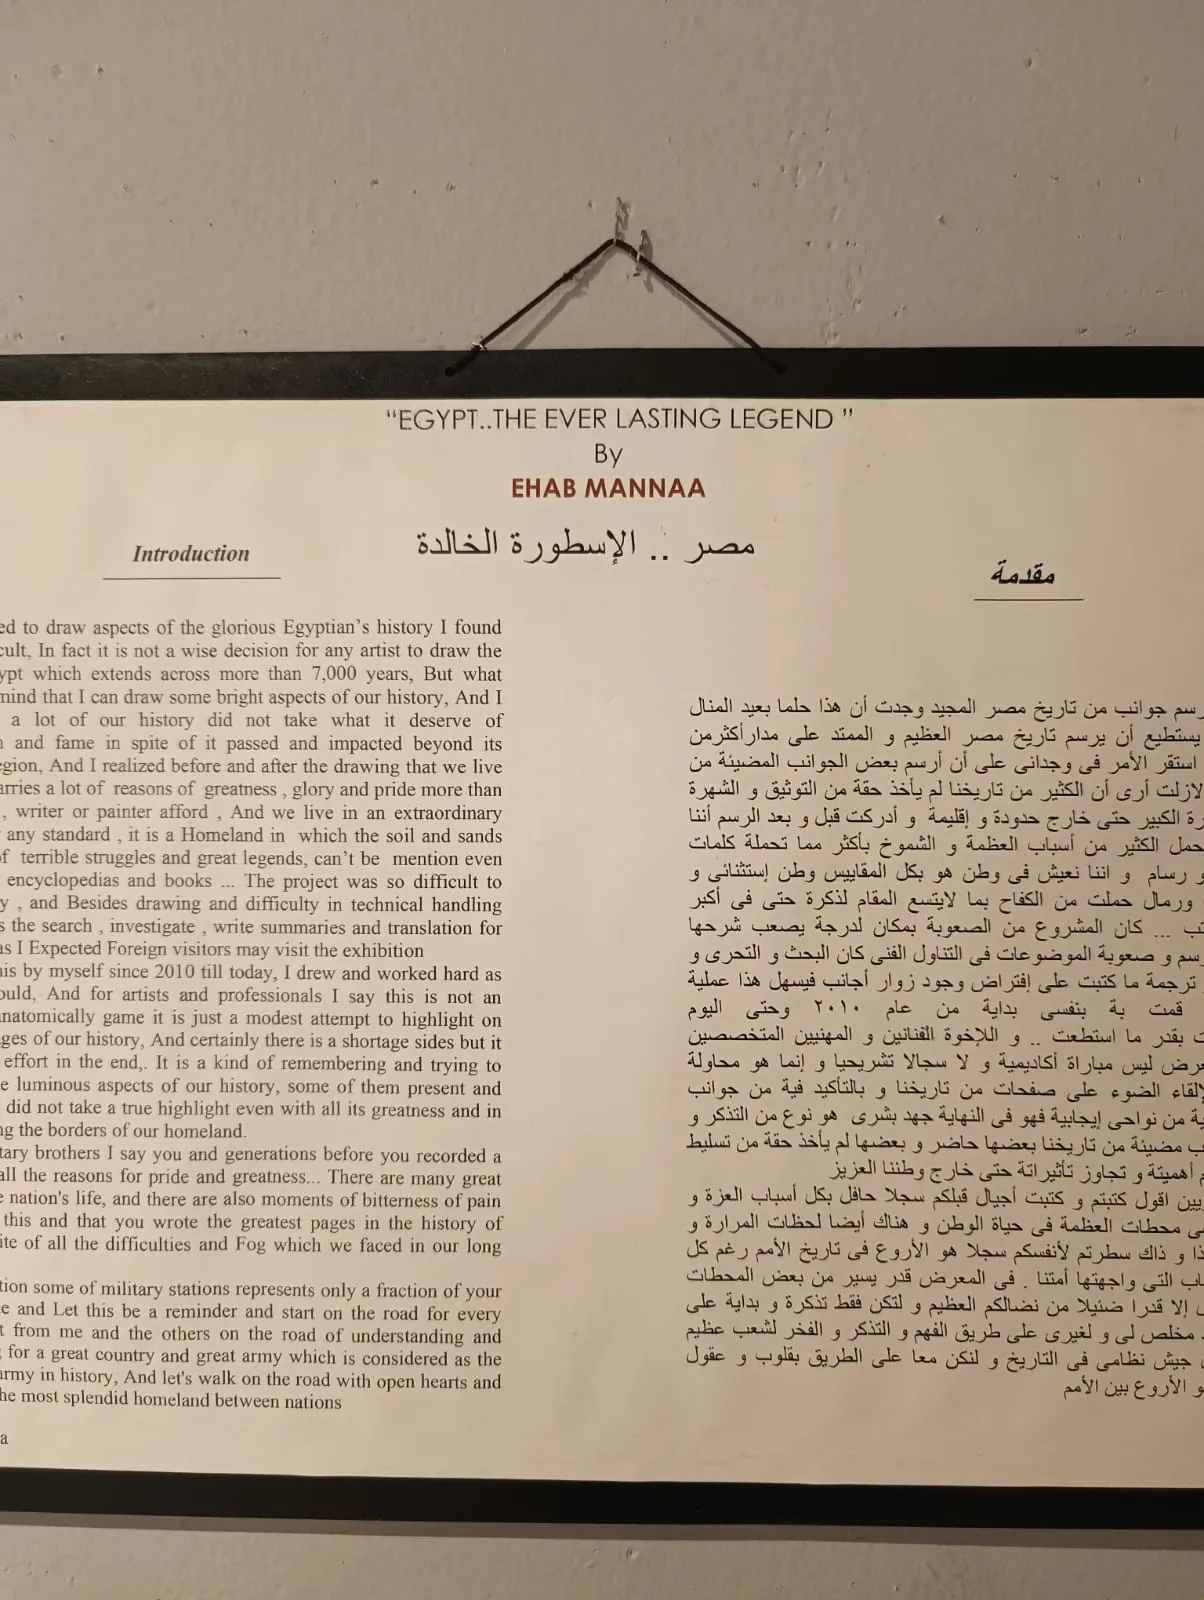 “EGYPT..THE EVER LASTING LEGEND ”
By
EHAB MANNAA
مصر .. الإسطورة الخالدة
Introduction
ed to draw aspects of the glorious Egyptian’s history I found
cult, In fact it is not a wise decision for any artist to draw the
ypt which extends across more than 7,000 years, But what
mind that I can draw some bright aspects of our history, And I
a lot of our history did not take what it deserve of
and fame in spite of it passed and impacted beyond its
egion, And I realized before and after the drawing that we live
arries a lot of reasons of greatness , glory and pride more than
, writer or painter afford , And we live in an extraordinary
any standard , it is a Homeland in which the soil and sands
of terrible struggles and great legends, can’t be mention even
encyclopedias and books ... The project was so difficult to
y , and Besides drawing and difficulty in technical handling
s the search , investigate , write summaries and translation for
as I Expected Foreign visitors may visit the exhibition
his by myself since 2010 till today, I drew and worked hard as
ould, And for artists and professionals I say this is not an
anatomically game it is just a modest attempt to highlight on
ages of our history, And certainly there is a shortage sides but it
effort in the end,. It is a kind of remembering and trying to
e luminous aspects of our history, some of them present and
did not take a true highlight even with all its greatness and in
ng the borders of our homeland.
tary brothers I say you and generations before you recorded a
all the reasons for pride and greatness... There are many great
e nation's life, and there are also moments of bitterness of pain
this and that you wrote the greatest pages in the history of
ite of all the difficulties and Fog which we faced in our long
tion some of military stations represents only a fraction of your
e and Let this be a reminder and start on the road for every
t from me and the others on the road of understanding and
g for a great country and great army which is considered as the
army in history, And let's walk on the road with open hearts and
he most splendid homeland between nations
a
مقدمة
رسم جوانب من تاريخ مصر المجيد وجدت أن هذا حلما بعيد المنال
يستطيع أن يرسم تاريخ مصر العظيم و الممتد على مدارأكثرمن
استقر الأمر فى وجدانى على أن أرسم بعض الجوانب المضيئة من
لازلت أرى أن الكثير من تاريخنا لم يأخذ حقة من التوثيق و الشهرة
رة الكبير حتى خارج حدودة و إقليمة و أدركت قبل و بعد الرسم أننا
حمل الكثير من أسباب العظمة و الشموخ بأكثر مما تحملة كلمات
و رسام و اننا نعيش فى وطن هو بكل المقاييس وطن إستثنائى و
ورمال حملت من الكفاح بما لايتسع المقام لذكرة حتى فى أكبر
تب ... كان المشروع من الصعوبة بمكان لدرجة يصعب شرحها
رسم و صعوبة الموضوعات فى التناول الفنى كان البحث و التحرى و
ترجمة ما كتبت على إفتراض وجود زوار أجانب فيسهل هذا عملية
قمت بة بنفسى بداية من عام ٢٠١٠ وحتى اليوم
ت بقدر ما استطعت .. و اللإخوة الفنانين و المهنيين المتخصصين
عرض ليس مباراة أكاديمية و لا سجالا تشريحيا و إنما هو محاولة
إلقاء الضوء على صفحات من تاريخنا و بالتأكيد فية من جوانب
ية من نواحى إيجابية فهو فى النهاية جهد بشرى هو نوع من التذكر و
ب مضيئة من تاريخنا بعضها حاضر و بعضها لم يأخذ حقة من تسليط
م أهميتة و تجاوز تأثيراتة حتى خارج وطننا العزيز
يين اقول كتبتم و كتبت أجيال قبلكم سجلا حافل بكل أسباب العزة و
ى محطات العظمة فى حياة الوطن و هناك أيضا لحظات المرارة و
ذا و ذاك سطرتم لأنفسكم سجلا هو الأروع فى تاريخ الأمم رغم كل
اب التى واجهتها أمتنا . فى المعرض قدر يسير من بعض المحطات
إلا قدرا ضئيلا من نضالكم العظيم و لتكن فقط تذكرة و بداية على
مخلص لى و لغيرى على طريق الفهم و التذكر و الفخر لشعب عظيم
جيش نظامى فى التاريخ و لنكن معا على الطريق بقلوب و عقول
و الأروع بين الأمم